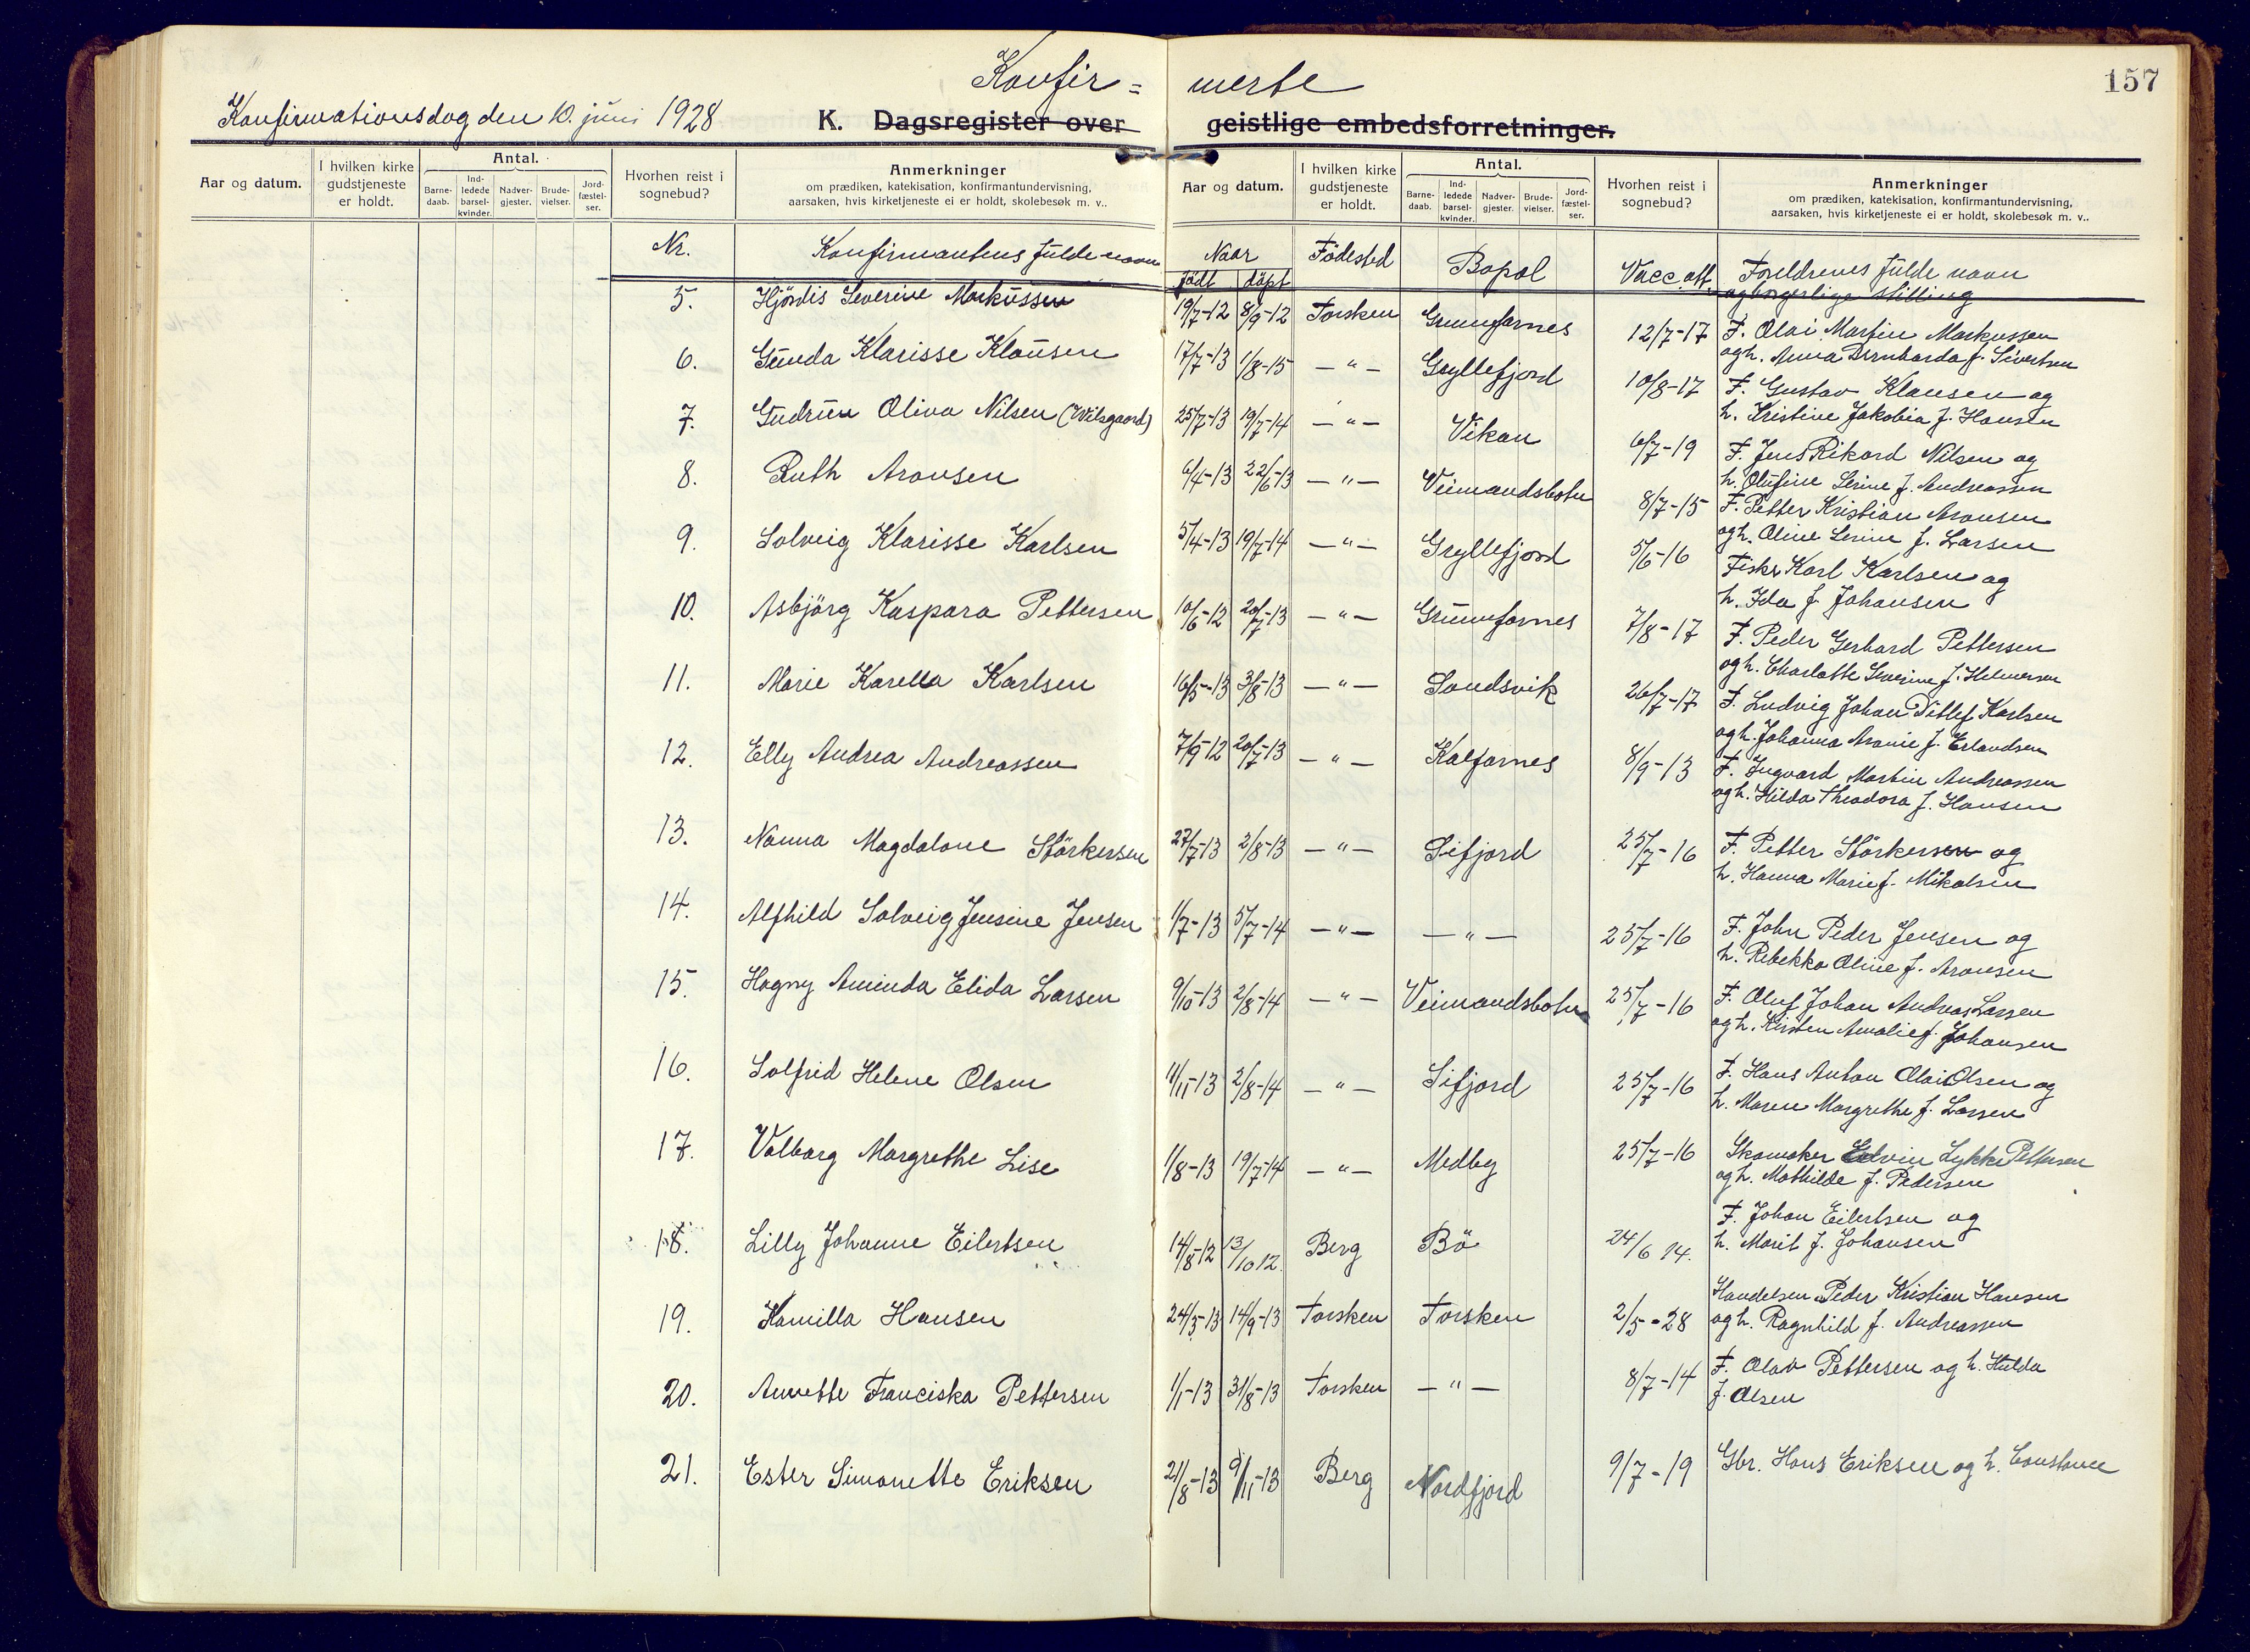 157
Konfir = merte
Konfirmationsdag den 10. juni 1928
K. Dagsregister over geistlige embedsforretninger.
Aar og datum. I hvilken kirke gudstjeneste er holdt. Antal. Barnedaab. Indledede barselkvinder. Nadvergjester. Brudevielser. Jordfæstelser. Hvorhen reist i sognebud? Anmerkninger om prædiken, katekisation, konfirmantundervisning, aarsaken, hvis kirketjeneste ei er holdt, skolebesøk m. v..
Aar og datum. I hvilken kirke gudstjeneste er holdt. Antal. Barnedaab. Indledede barselkvinder. Nadvergjester. Brudevielser. Jordfæstelser. Hvorhen reist i sognebud? Anmerkninger om prædiken, katekisation, konfirmantundervisning, aarsaken, hvis kirketjeneste ei er holdt, skolebesøk m. v..
Nr. Konfirmantens fulde navn Naar født døpt Fødested Bopæl Vacc. att. Foreldrenes fulde navn og borgerlige stilling
5. Hjördis Severine Markussen 19/7-12 8/9-12 Torsken Grunnfarnes 12/7-17 F. Olai Martin Markussen
og h. Anna Bernharda f. Sivertsen
6. Gunda Klarisse Klausen 17/7-13 1/8-15 — " — Gryllefjord 10/8-17 F. Gustav Klausen og
h. Kristine Jakobia f. Hansen
7. Gudrun Oliva Nilsen (Wilsgaard) 25/7-13 19/7-14 — " — Vikan 6/7-19 F. Jens Rikard Nilsen og
h. Olufine Serine f. Andreassen
8. Ruth Aronsen 6/4-13 22/6-13 — " — Veimandsbotn 8/7-15 F. Petter Kristian Aronsen
og h. Oline Serine f. Larsen
9. Solveig Klarisse Karlsen 5/4-13 19/7-14 — " — Gryllefjord 5/6-16 Fisker Karl Karlsen og
h. Ida f. Johansen
10. Asbjörg Kaspara Pettersen 10/6-12 20/7-13 — " — Grunnfarnes 7/8-17 F. Peder Gerhard Pettersen
og h. Charlotte Severine f. Helmersen
11. Marie Karella Karlsen 16/5-13 3/8-13 — " — Sandsvik 26/7-17 F. Ludvig Johan Ditlef Karlsen
og h. Johanna Aronie f. Erlandsen
12. Elly Andrea Andreassen 7/9-12 20/7-13 — " — Kalfarnes 8/9-13 F. Ingvard Martin Andreassen
og h. Hilda Theodora f. Hansen
13. Nanna Magdalone Störkersen 27/7-13 2/8-13 — " — Sifjord 25/7-16 F. Petter Störkersen og
h. Hanna Marie f. Mikalsen
14. Alfhild Solveig Jensine Jensen 1/7-13 5/7-14 — " — — " — 25/7-16 F. John Peder Jensen og
h. Rebekka Oline f. Aronsen
15. Hagny Aminda Elida Larsen 9/10-13 2/8-14 — " — Veimandsbotn 25/7-16 F. Oluf Johan Andreas Larsen
og h. Kirsten Amalie f. Johansen
16. Solfrid Helene Olsen 11/11-13 2/8-14 — " — Sifjord 25/7-16 F. Hans Anton Olai Olsen og
h. Maren Margrethe f. Larsen
17. Valborg Margrethe Lise 1/8-13 19/7-14 — " — Medby 25/7-16 Skomaker Edvin Lykke Pettersen
og h. Mathilde f. Pedersen
18. Lilly Johanne Eilertsen 14/8-12 13/10 12. Berg Bö 24/6 14. F. Johan Eilertsen og
h. Marit f. Johansen
19. Kamilla Hansen 24/3-13 14/9-13 Torsken Torsken 2/5-28 Handelsm. Peder Kristian Hansen
og h. Ragnhild f. Andreassen
20. Annette Franciska Pettersen 1/1-13 31/8-13 Torsken — " — 8/7-14 F. Olav Pettersen og h. Hulda
f. Olsen
21. Ester Simonette Eriksen 21/8-13 9/11-13 Berg Nordfjord 9/7-19 Gbr. Hans Eriksen og h. Constance